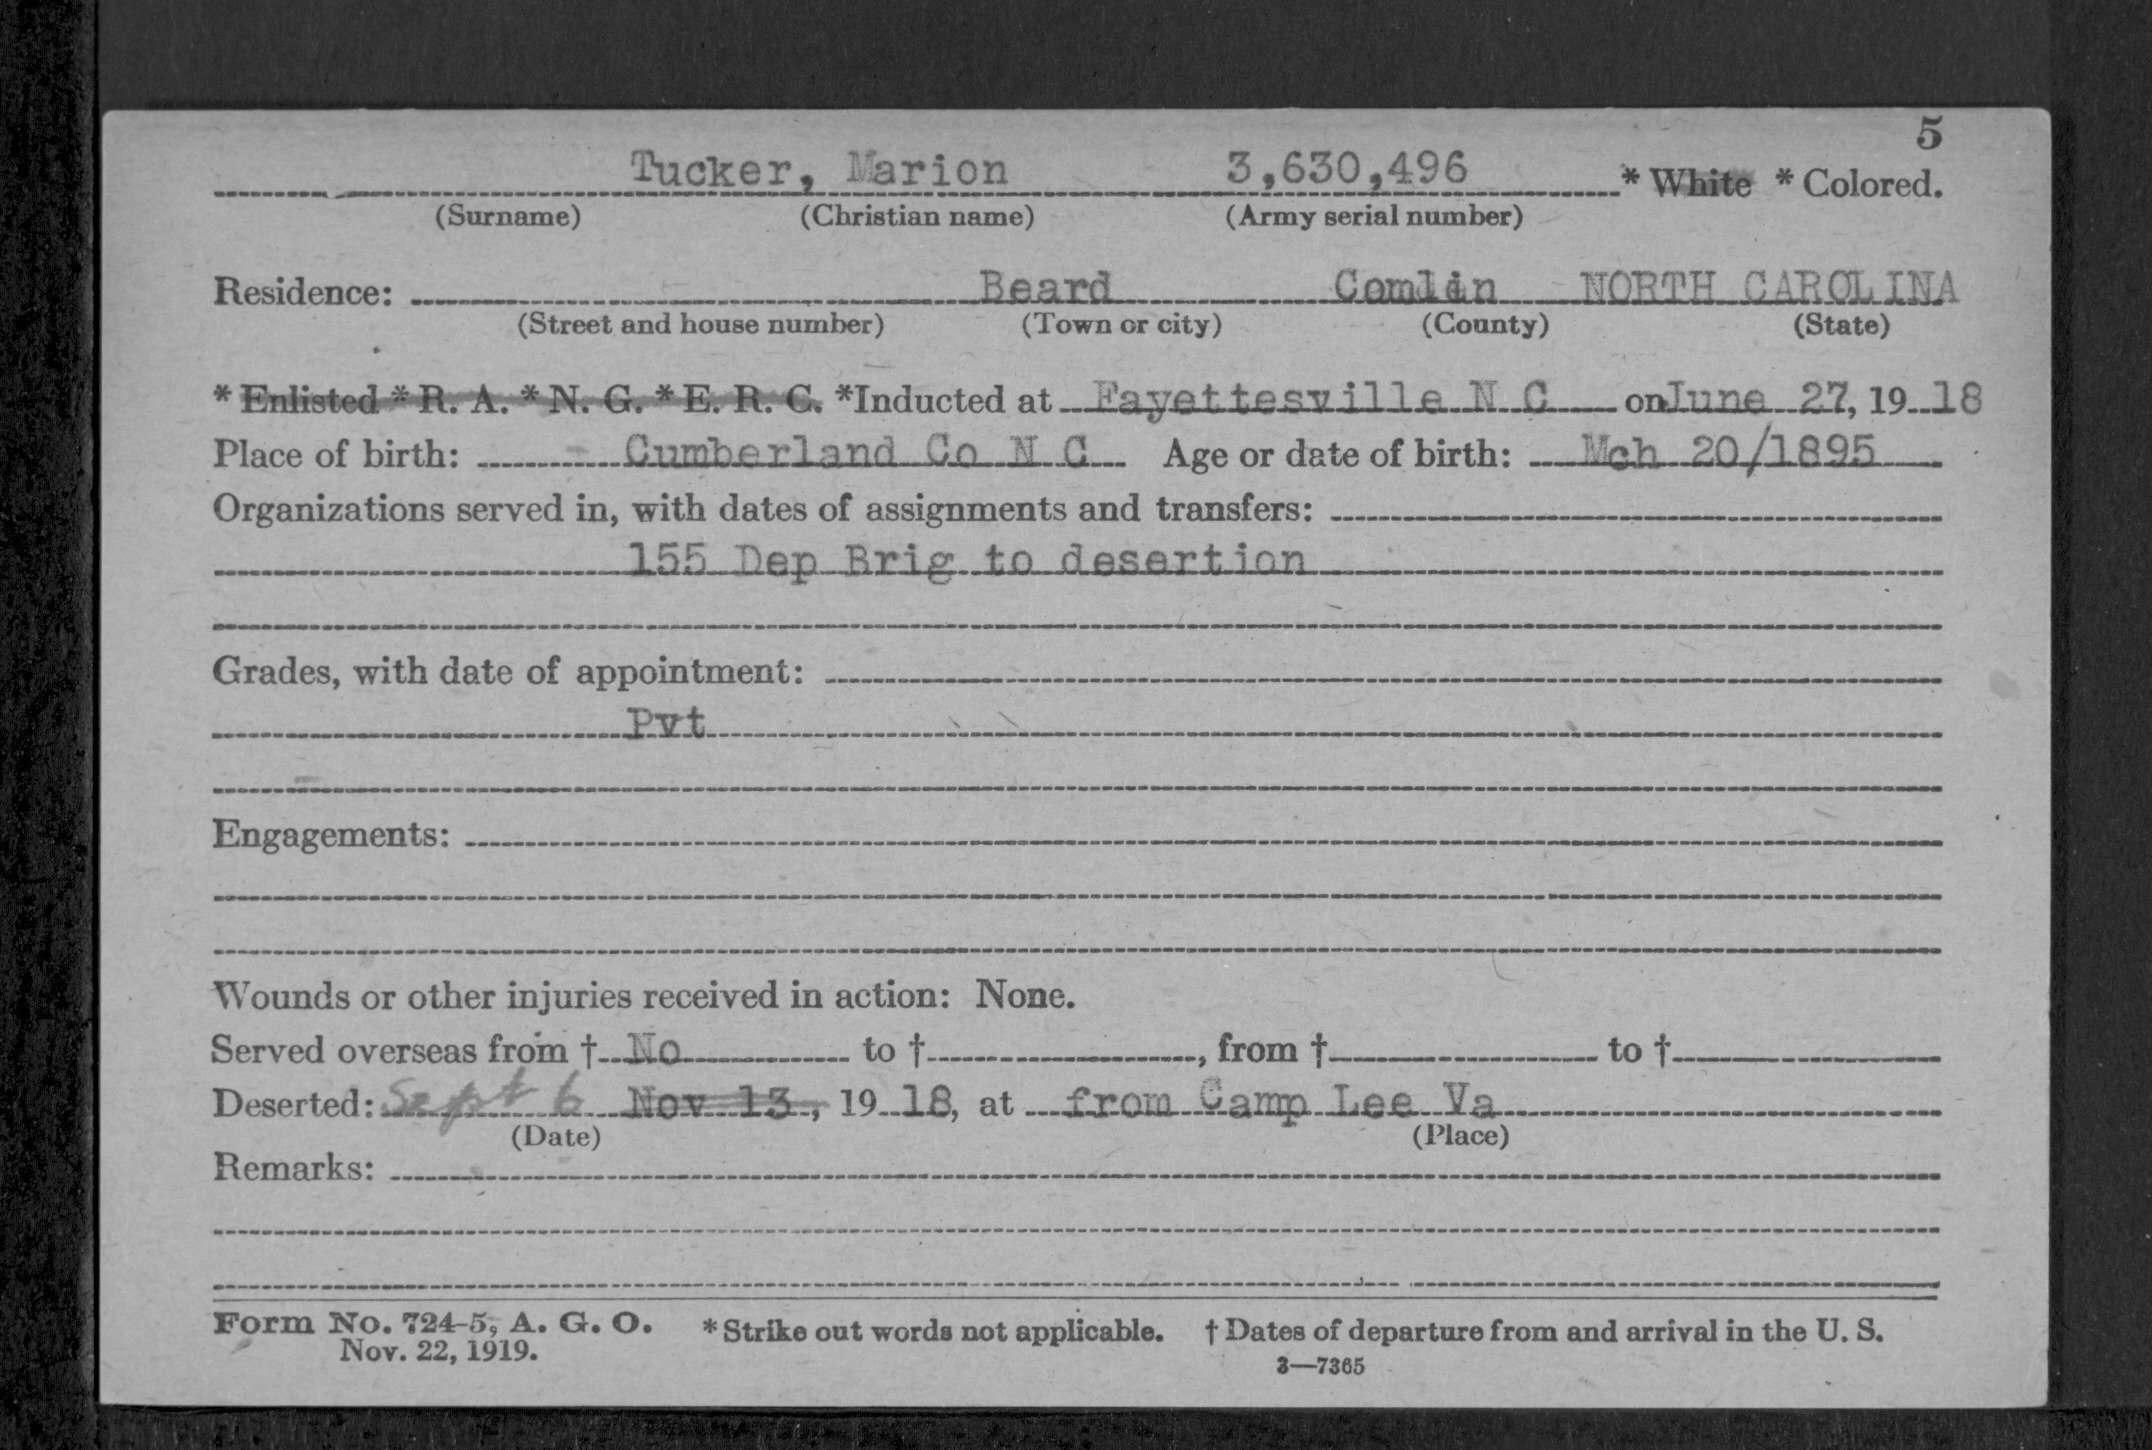 5
Tucker, Marion 3,630,496 * White * Colored.
(Surname) (Christian name) (Army serial number)
Residence: Beard NORTH CAROLINA
(Street and house number) (Town or city) (County) (State)
* Enlisted * R. A. * N. G. * E. R. C. *Inducted at Fayettesville N C on June 27, 19 18
Place of birth: Cumberland Co N C Age or date of birth: Mch 20/1895
Organizations served in, with dates of assignments and transfers:
155 Dep Brig to desertion
Grades, with date of appointment:
Pvt
Engagements:
Wounds or other injuries received in action: None.
Served overseas from † No to †, from † to †
Deserted: Sept 6 Nov 13, 19 18, at from Camp Lee Va
(Date) (Place)
Remarks:
Form No. 724-5, A. G. O. * Strike out words not applicable. † Dates of departure from and arrival in the U. S.
Nov. 22, 1919. 3—7365